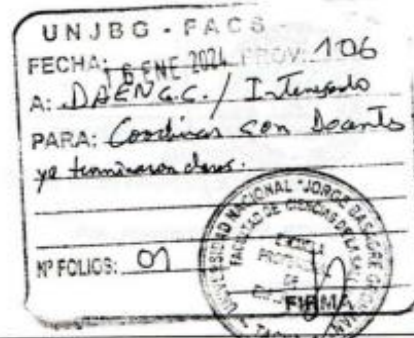 UNJBG - FACS
FECHA: 16 ENE 2024 PROV: 106
A: DAEN G.C. / Internado
PARA: Coordinar con Docentes
ya terminaron clases.
Nº FOLIOS: 01
FIRMA
UNIVERSIDAD NACIONAL "JORGE BASADRE
FACULTAD DE CIENCIAS DE LA SALUD